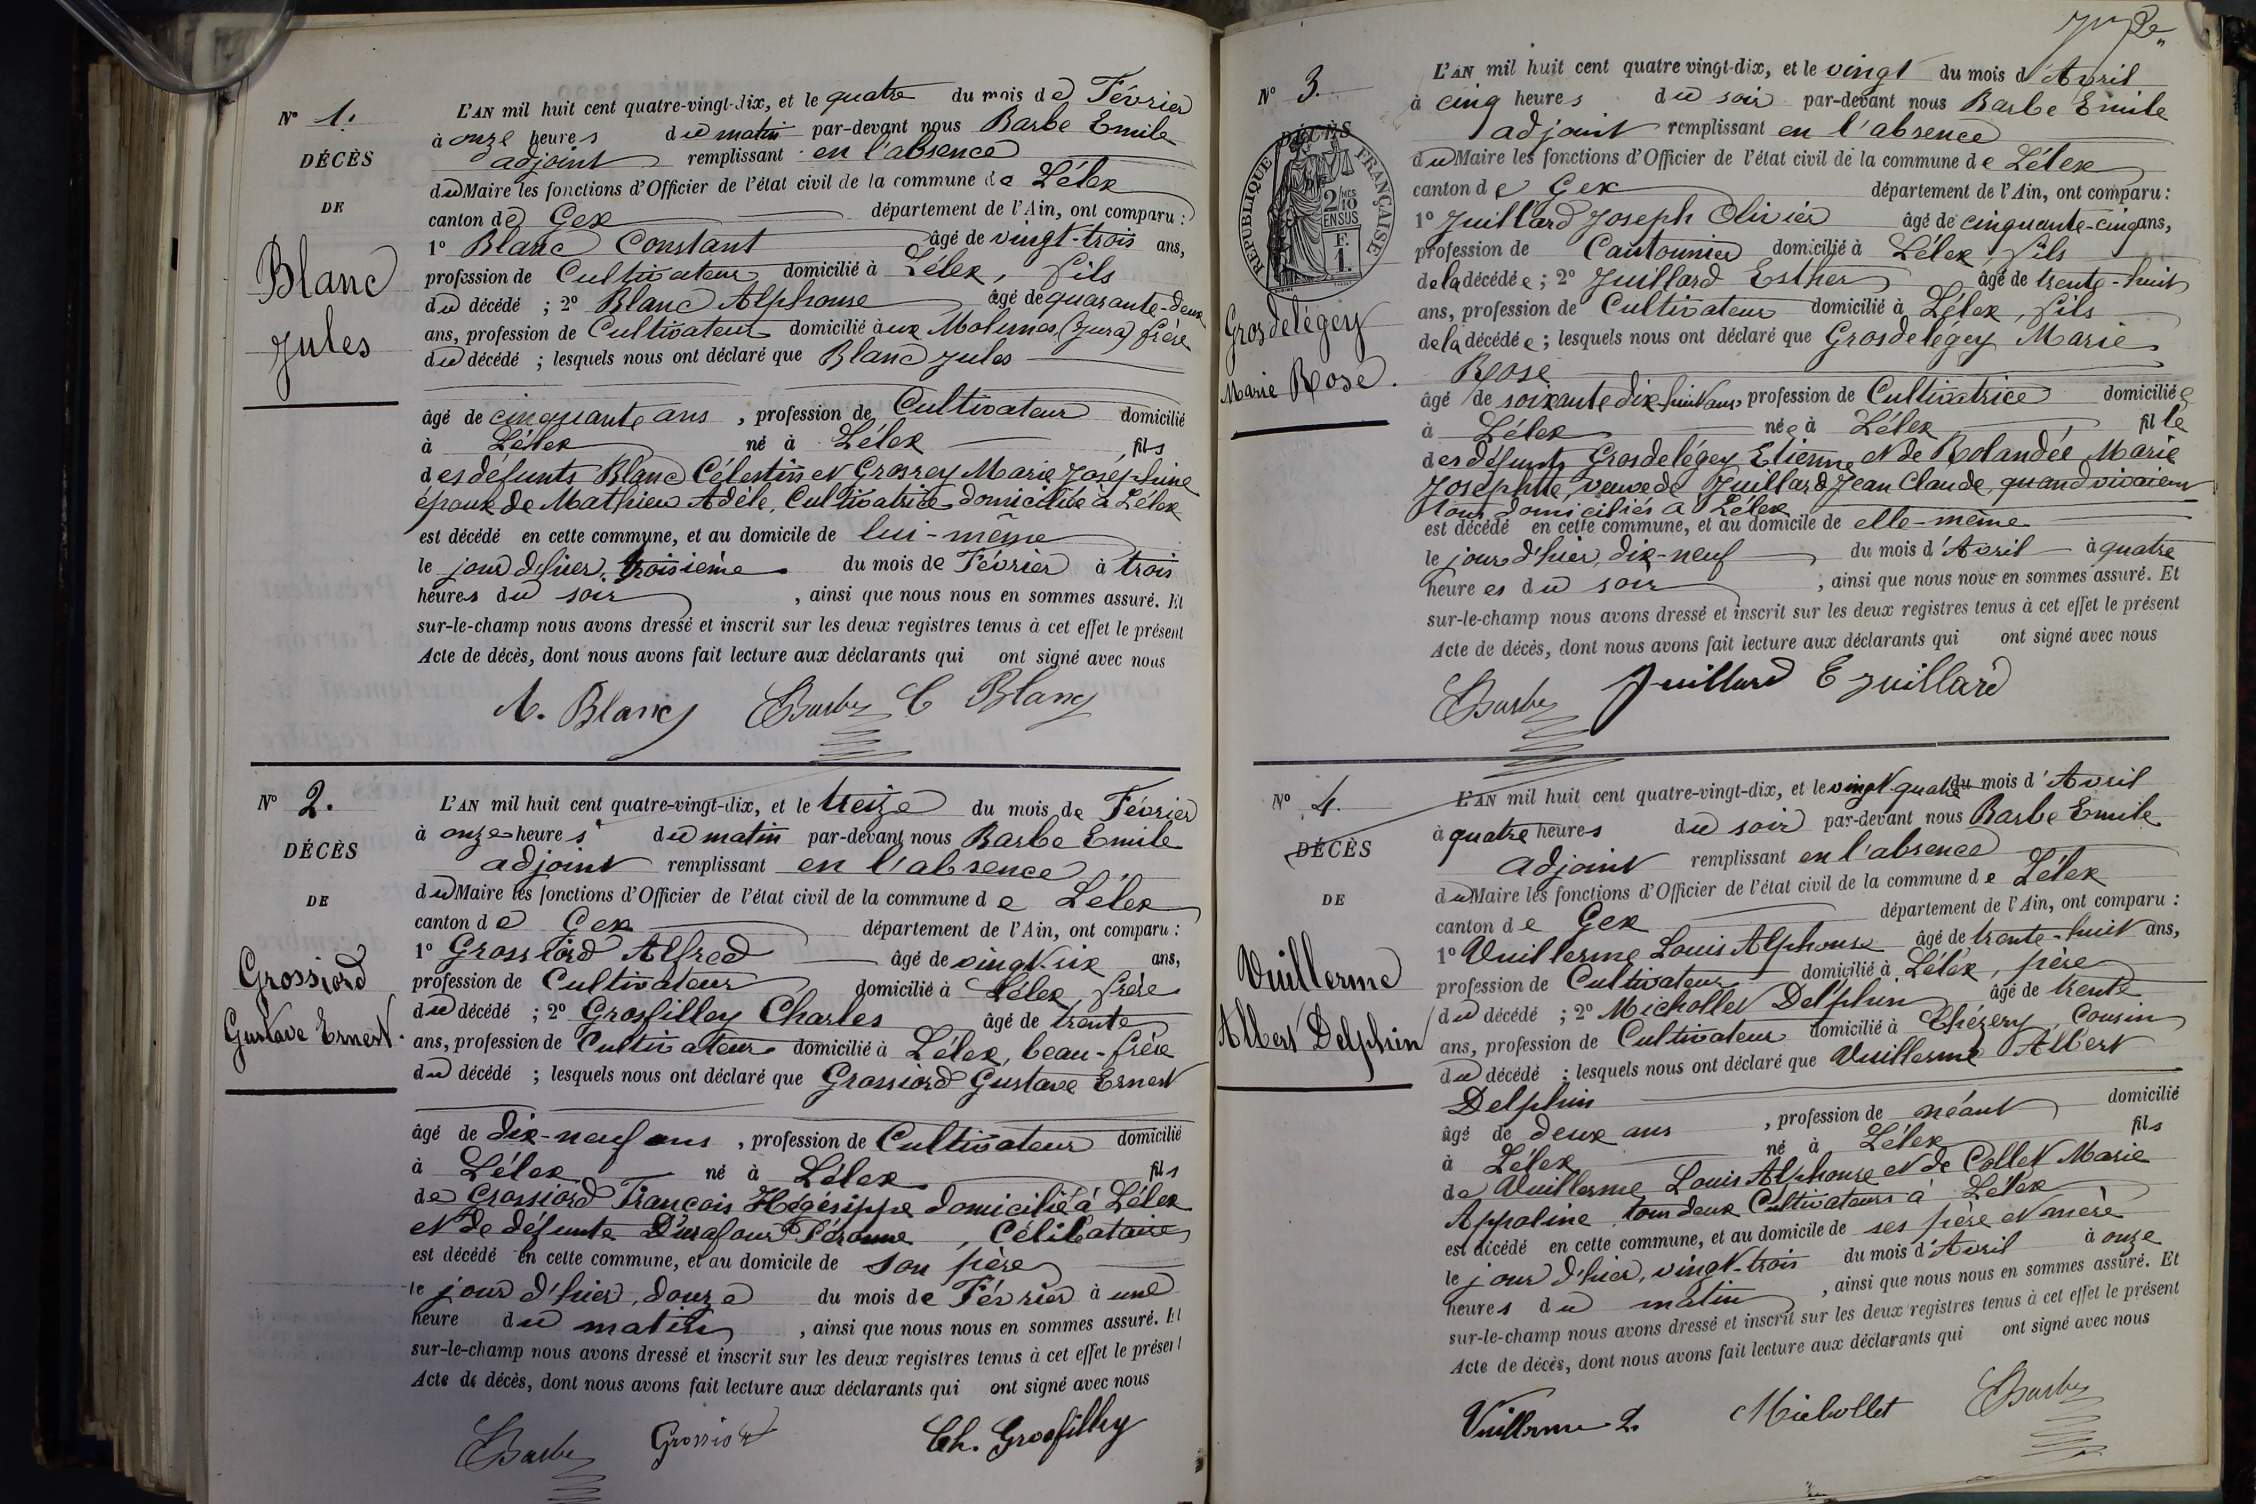 N° 1.
DÉCÈS
DE
Blanc
Jules
L'AN mil huit cent quatre-vingt-dix, et le quatre du mois de Février
à onze heures du matin par-devant nous Barbe Emile
adjoint remplissant en l'absence
du Maire les fonctions d'Officier de l'état civil de la commune de Lélex
canton de Gex département de l'Ain, ont comparu :
1° Blanc Constant âgé de vingt-trois ans,
profession de Cultivateur domicilié à Lélex, fils
du décédé ; 2° Blanc Alphonse âgé de quarante-deux
ans, profession de Cultivateur domicilié aux Molunes (Jura) frère
du décédé ; lesquels nous ont déclaré que Blanc Jules
âgé de cinquante ans, profession de Cultivateur domicilié
à Lélex né à Lélex fils
des défunts Blanc Célestin et Grosrey Marie Joséphine
époux de Mathieu Adèle, Cultivatrice domiciliée à Lélex
est décédé en cette commune, et au domicile de lui-même
le jour d'hier, troisième du mois de Février à trois
heures du soir, ainsi que nous nous en sommes assuré. Et
sur-le-champ nous avons dressé et inscrit sur les deux registres tenus à cet effet le présent
Acte de décès, dont nous avons fait lecture aux déclarants qui ont signé avec nous
A. Blanc EBarbe C Blanc
N° 2.
DÉCÈS
DE
Grossiord
Gustave Ernest.
L'AN mil huit cent quatre-vingt-dix, et le treize du mois de Février
à onze heures du matin par-devant nous Barbe Emile
adjoint remplissant en l'absence
du Maire les fonctions d'Officier de l'état civil de la commune de Lélex
canton de Gex département de l'Ain, ont comparu :
1° Grossiord Alfred âgé de vingt-six ans,
profession de Cultivateur domicilié à Lélex, frère
du décédé ; 2° Grosfilley Charles âgé de trente
ans, profession de Cultivateur domicilié à Lélex, beau-frère
du décédé ; lesquels nous ont déclaré que Grossiord Gustave Ernest
âgé de dix-neuf ans, profession de Cultivateur domicilié
à Lélex né à Lélex fils
de Grossiord François Hégésippe domicilié à Lélex
et de défunte Durafour Péronne, Célibataire
est décédé en cette commune, et au domicile de son père
le jour d'hier, douze du mois de Février à une
heure du matin, ainsi que nous nous en sommes assuré. Et
sur-le-champ nous avons dressé et inscrit sur les deux registres tenus à cet effet le présent
Acte de décès, dont nous avons fait lecture aux déclarants qui ont signé avec nous
EBarbe Grossiord Ch. Grosfilley
N° 3.
DÉCÈS
RÉPUBLIQUE FRANÇAISE
2/10 MES
EN SUS
F.
1.
Grosdelégey
Marie Rose.
L'AN mil huit cent quatre vingt-dix, et le vingt du mois d'Avril
à cinq heures du soir par-devant nous Barbe Emile
adjoint remplissant en l'absence
du Maire les fonctions d'Officier de l'état civil de la commune de Lélex
canton de Gex département de l'Ain, ont comparu :
1° Juillard Joseph Olivier âgé de cinquante-cinq ans,
profession de Cantonnier domicilié à Lélex, fils
de la décédée ; 2° Juillard Esther âgé de trente-huit
ans, profession de Cultivateur domicilié à Lélex, fils
de la décédée ; lesquels nous ont déclaré que Grosdelégey Marie
Rose
âgé de soixante dix-huit ans, profession de Cultivatrice domiciliée
à Lélex née à Lélex fille
des défunts Grosdelégey Etienne et de Rolandée Marie
Josephte, veuve de Juillard Jean Claude, quand vivaient
tous domiciliés à Lélex
est décédé en cette commune, et au domicile de elle-même
le jour d'hier, dix-neuf du mois d'Avril à quatre
heures du soir, ainsi que nous nous en sommes assuré. Et
sur-le-champ nous avons dressé et inscrit sur les deux registres tenus à cet effet le présent
Acte de décès, dont nous avons fait lecture aux déclarants qui ont signé avec nous
EBarbe Juillard E Juillard
N° 4.
DÉCÈS
DE
Vuillerme
Albert Delphin
L'AN mil huit cent quatre-vingt-dix, et le vingt-quatre du mois d'Avril
à quatre heures du soir par-devant nous Barbe Emile
adjoint remplissant en l'absence
du Maire les fonctions d'Officier de l'état civil de la commune de Lélex
canton de Gex département de l'Ain, ont comparu :
1° Vuillerme Louis Alphonse âgé de trente-huit ans,
profession de Cultivateur domicilié à Lélex, père
du décédé ; 2° Michollet Delphin âgé de trente
ans, profession de Cultivateur domicilié à Chézery, Cousin
du décédé ; lesquels nous ont déclaré que Vuillerme Albert
Delphin
âgé de deux ans, profession de néant domicilié
à Lélex né à Lélex fils
de Vuillerme Louis Alphonse et de Collet Marie
Appoline, tous deux Cultivateurs à Lélex
est décédé en cette commune, et au domicile de ses père et mère
le jour d'hier, vingt-trois du mois d'Avril à onze
heures du matin, ainsi que nous nous en sommes assuré. Et
sur-le-champ nous avons dressé et inscrit sur les deux registres tenus à cet effet le présent
Acte de décès, dont nous avons fait lecture aux déclarants qui ont signé avec nous
Vuillerme L. Michollet EBarbe